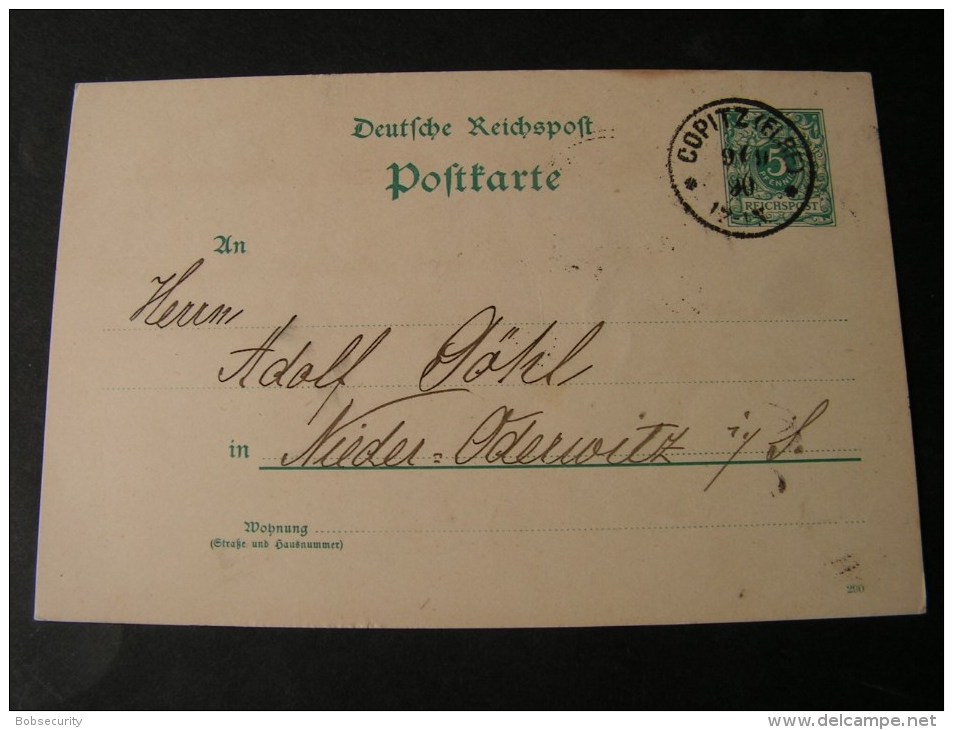 Deutsche Reichspost
Postkarte
COPITZ (ELBE)
90
5
PFENNIG
REICHSPOST
An
Herrn
Adolf
in Nieder-Oderwitz i/S.
Wohnung
(Straße und Hausnummer)
290
Bobsecurity
www.delcampe.net